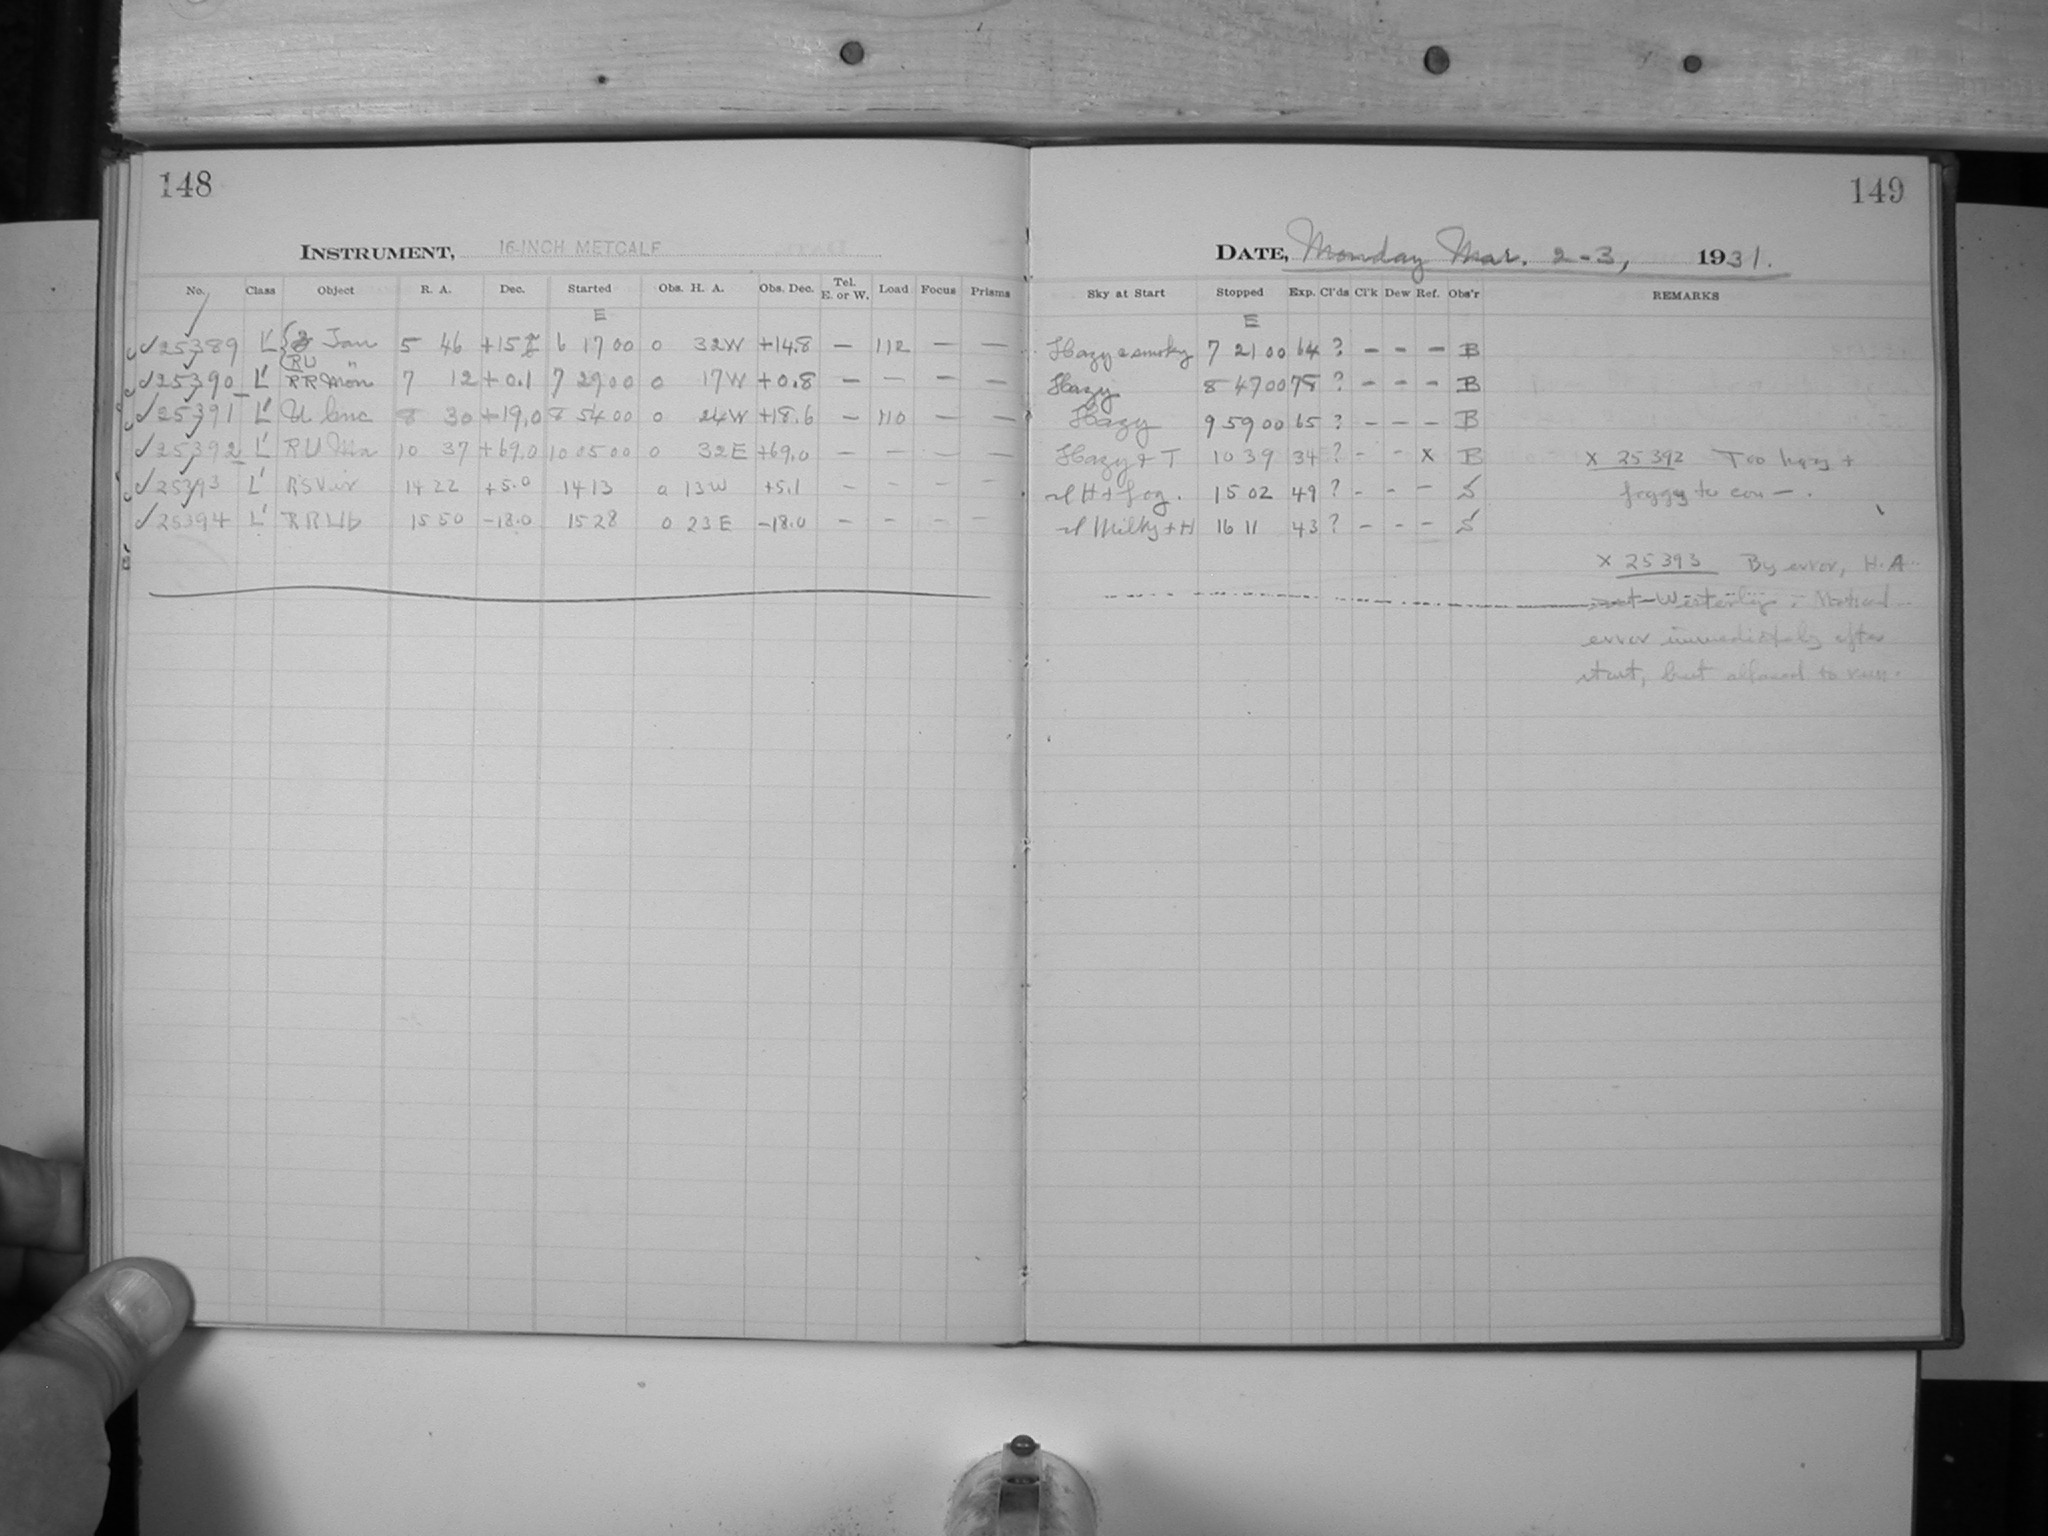 148
149
INSTRUMENT, 16-INCH METCALF
DATE, Monday Mar. 2-3, 1931.
No. Class Object R. A. Dec. Started Obs. H. A. Obs. Dec. Tel. E. or W. Load Focus Prisms
Sky at Start Stopped Exp. Cl'ds Cl'k Dew Ref. Obs'r REMARKS
E
E
✓25389 L' Tau 5 46 +15 6 17 00 0 32W +14.8 — 112 — —
RU "
Hazy & smoky 7 21 00 64 ? - - - B
✓25390 L' RR Mon 7 12 +0.1 7 29 00 0 17W +0.8 — — — —
Hazy 8 47 00 78 ? - - - B
✓25391 L' U Cnc 8 30 +19.0 8 54 00 0 24W +18.6 — 110 — —
Hazy 9 59 00 65 ? - - - B
✓25392 L' R U Ma 10 37 +69.0 10 05 00 0 32E +69.0 — — — —
Hazy & T 10 39 34 ? - - X B
X 25392 Too hazy +
✓25393 L' RS Vir 14 22 +5.0 14 13 0 13W +5.1 — — — —
H + fog. 15 02 49 ? - - - S
foggy to con—.
✓25394 L' RR Lib 15 50 -18.0 15 28 0 23E -18.0 — — — —
Milky + H 16 11 43 ? - - - S
X 25393 By error, H.A.
set Westerly. Noticed
error immediately after
start, but allowed to run.